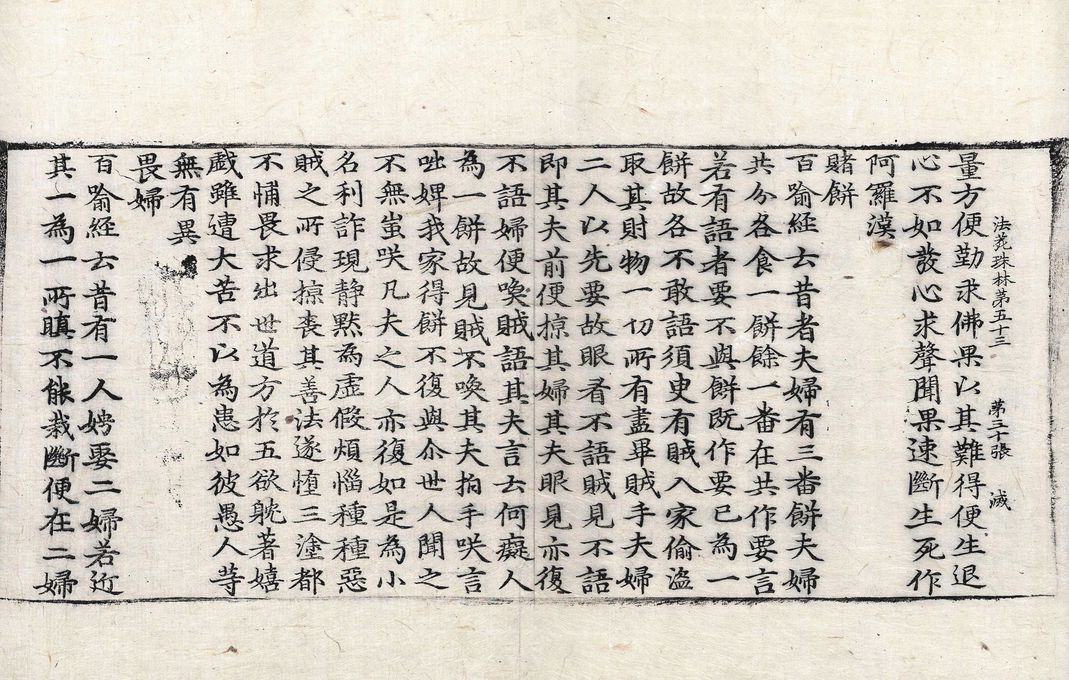 法苑珠林第五十三 第三十張 滅
量方便勤求佛果以其難得便生退
心不如發心求聲聞果速斷生死作
阿羅漢
賭餅
百喻經云昔者夫婦有三番餅夫婦
共分各食一餅餘一番在共作要言
若有語者要不與餅既作要已為一
餅故各不敢語須臾有賊入家偷盜
取其財物一切所有盡畢賊手夫婦
二人以先要故眼看不語賊見不語
即其夫前便掠其婦其夫眼見亦復
不語婦便喚賊語其夫言云何癡人
為一餅故見賊不喚其夫拍手咲言
咄婢我家得餅不復與尒世人聞之
不無蚩咲凡夫之人亦復如是為小
名利詐現静黙為虛假煩惱種種惡
賊之所侵掠喪其善法遂墮三塗都
不怖畏求出世道方於五欲躭著嬉
戲雖遭大苦不以為患如彼愚人等
無有異
畏婦
百喻經云昔有一人娉娶二婦若近
其一為一所瞋不能裁斷便在二婦